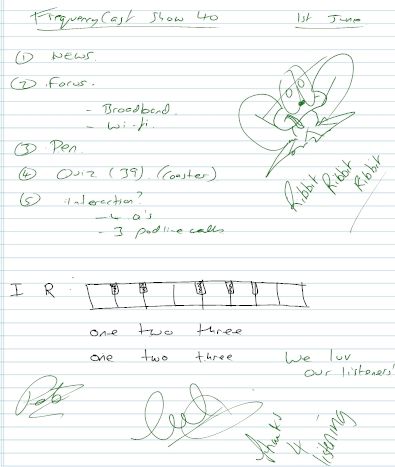 FrequencyCast Show 40 1st June
① News
② Focus.
- Broadband.
- Wi-fi.
③ Pen.
④ Quiz (39) (coaster)
⑤ Interaction?
- 4 Q's
- 3 podline calls
Ribbit Ribbit Ribbit
I R :
one two three
one two three
We luv
our listeners!
Pete
thanks
4
listening